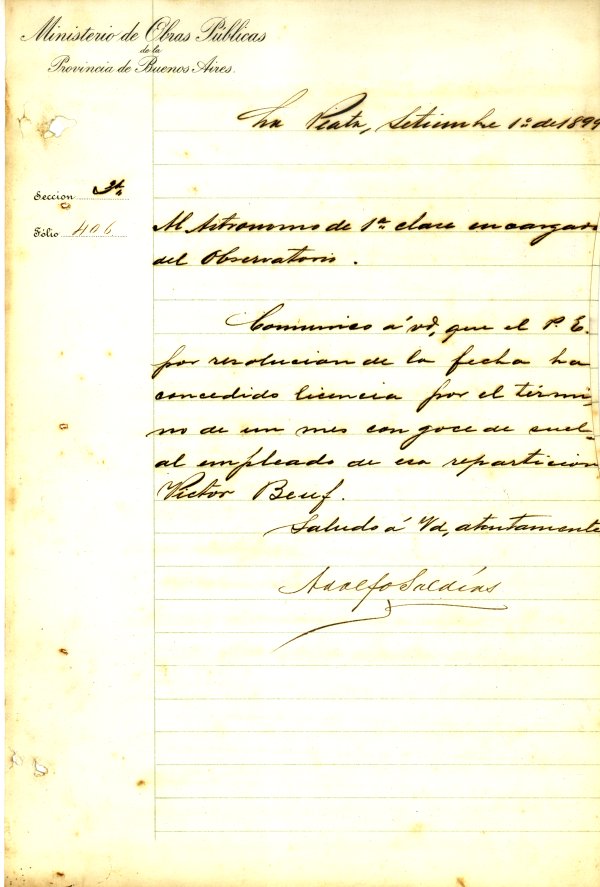 Ministerio de Obras Públicas
de la
Provincia de Buenos Aires.
La Plata, Setiembre 1º de 1899
Seccion 2ª
Fólio 406
Al Astronomo de 1ª clase encargado
del Observatorio.
Comunico á Vd, que el P. E.
por resolucion de la fecha ha
concedido licencia por el térmi-
no de un mes con goce de suel-
al empleado de esa reparticion
Victor Beuf.
Saludo á Vd, atentamente
Adolfo Saldías